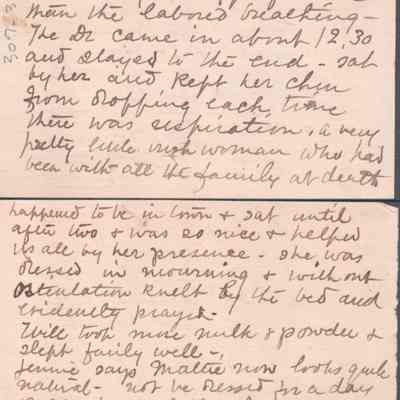 than the labored breathing -
The Dr came in about 12,30
and stayed to the end - sat
by her and kept her chin
from dropping each time
there was respiration. a very
pretty little irish woman who had
been with all the family at death
happened to be in town & sat until
after two & was so nice & helped
us all by her presence - she was
dressed in mourning & without
ostentation knelt by the bed and
evidently prayed -
Will took more milk & powder &
slept fairly well -
Jennie says Mattie now looks quite
natural - not be dressed for a day